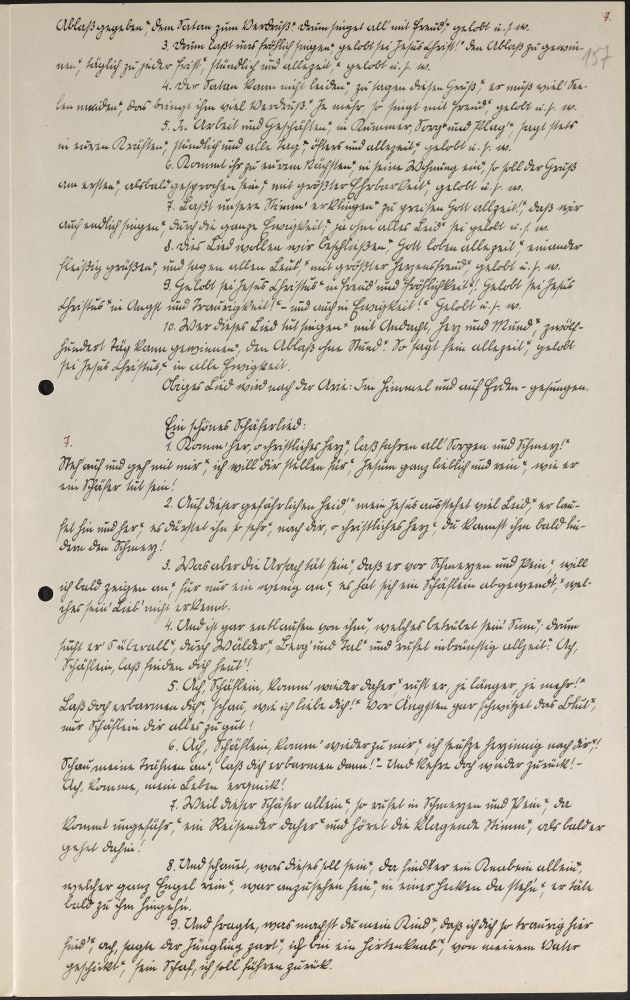 7.
157
Ablaß gegeben“ dem Satan zum Verdruß“ drum singet all' mit Freud,“ gelobt u. s. w.
3. Drum laßt uns fröhlich singen“ gelobt sei Jesus Christ!“ Den Ablaß zu gewin-
nen“, täglich zu jeder Frist“, stündlich und allezeit,“ gelobt u. s. w.
4. Der Satan kann nicht leiden“, zu sagen diesen Gruß“, er muß viel See-
len meiden“, das bringt ihm viel Verdruß.“ Je mehr so singt mit Freud“ gelobt u. s. w.
5. In Arbeit und Geschäften“, in Kummer, Sorg' und Plag“, sagt stets
in euren Kräften“, stündlich und alle Tag“, öfters und allezeit“, gelobt u. s. w.
6. Kommt ihr zu eurem Nächsten“, in seine Wohnung ein“, so soll der Gruß
am ersten“, alsbald gesprochen sein“, mit größter Ehrbarkeit“, gelobt u. s. w.
7. Laßt unsere Stimm' erklingen“ zu preisen Gott allzeit!“, daß wir
auch endlich singen“, durch die ganze Ewigkeit“, ja ohne alles Leid“ sei gelobt u. s. w.
8. Dies Lied wollen wir beschließen“, Gott loben allezeit“ einander
fleißig grüßen“, und sagen allen Leut“, mit größter Herzensfreud“, gelobt u. s. w.
9. Gelobt sei Jesus Christus“ in Freud' und Fröhlichkeit!“ Gelobt sei Jesus
Christus“ in Angst und Traurigkeit!“ – und auch in Ewigkeit!“ Gelobt u. s. w.
10. Wer dieses Lied tut singen“ mit Andacht, Herz und Mund“, zwölf-
hundert Täg kann gewinnen“, den Ablaß ohne Stund“. So sagt fein allezeit“, gelobt
sei Jesus Christus“, in alle Ewigkeit.
Obiges Lied wird nach der Arie: Im Himmel und auf Erden – gesungen.
Ein schönes Schäferlied:
7.
1. Komm' her, o christliches Herz“, laß fahren all' Sorgen und Schmerz!“
Steh' auf und geh' mit mir“, ich will dir stellen für“, Jesum ganz lieblich und rein“, wie er
ein Schäfer tut sein!
2. Auf dieser gefährlichen Heid'“ mein Jesus ausstehet viel Leid“, er lau-
fet hin und her“, es dürstet ihn so sehr“, nach dir, o christliches Herz“, du kannst ihm bald lin-
dern den Schmerz!
3. Was aber die Ursach tät sein“, daß er vor Schmerzen und Pein“, will
ich bald zeigen an“, hör nur ein wenig an“, es hat sich ein Schäflein abgewendt“, wel-
ches sein' Lieb' nicht erkennt.
4. Und ist gar entlaufen von ihm“, welches betrübet sein' Sinn“. Drum
sucht er's überall“, durch Wälder“, Berg' und Tal“ und rufet inbrünstig allzeit: Ach,
Schäflein, laß finden dich heut'!
5. Ach, Schäflein, komm' wieder daher“ ruft er, je länger, je mehr!“
Laß doch erbarmen dich“, schau, wie ich liebe dich!“ Vor Ängsten gar schwitzet das Blut“,
nur Schäflein dir alles zu gut!
6. Ach, Schäflein, komm' wieder zu mir“, ich seufze herzinnig nach dir“!
Schau, meine Tränen an“, laß dich erbarmen dann!“ – Und kehre doch wieder zurück! –
Ach, komme, mein Leben erquick!
7. Weil dieser Schäfer allein“, so rufet in Schmerzen und Pein“, da
kommt ungefähr,“ ein Reisender daher“ und höret die klagende Stimm“, als bald er
gehet dahin!
8. Und schauet, was dieses soll sein“, da findet er ein Knabein allein“,
welcher ganz Engel rein“, war anzusehen fein“, in einer Hecken da stehn“, er täte
bald zu ihm hingeh'n.
9. Und fragte, was machst du mein Kind“, daß ich dich so traurig hier
find'“, ach, sagte der Jüngling zart“, ich bin ein Hirtenknab'“, von meinem Vater
geschickt“, sein Schaf, ich soll führen zurück.